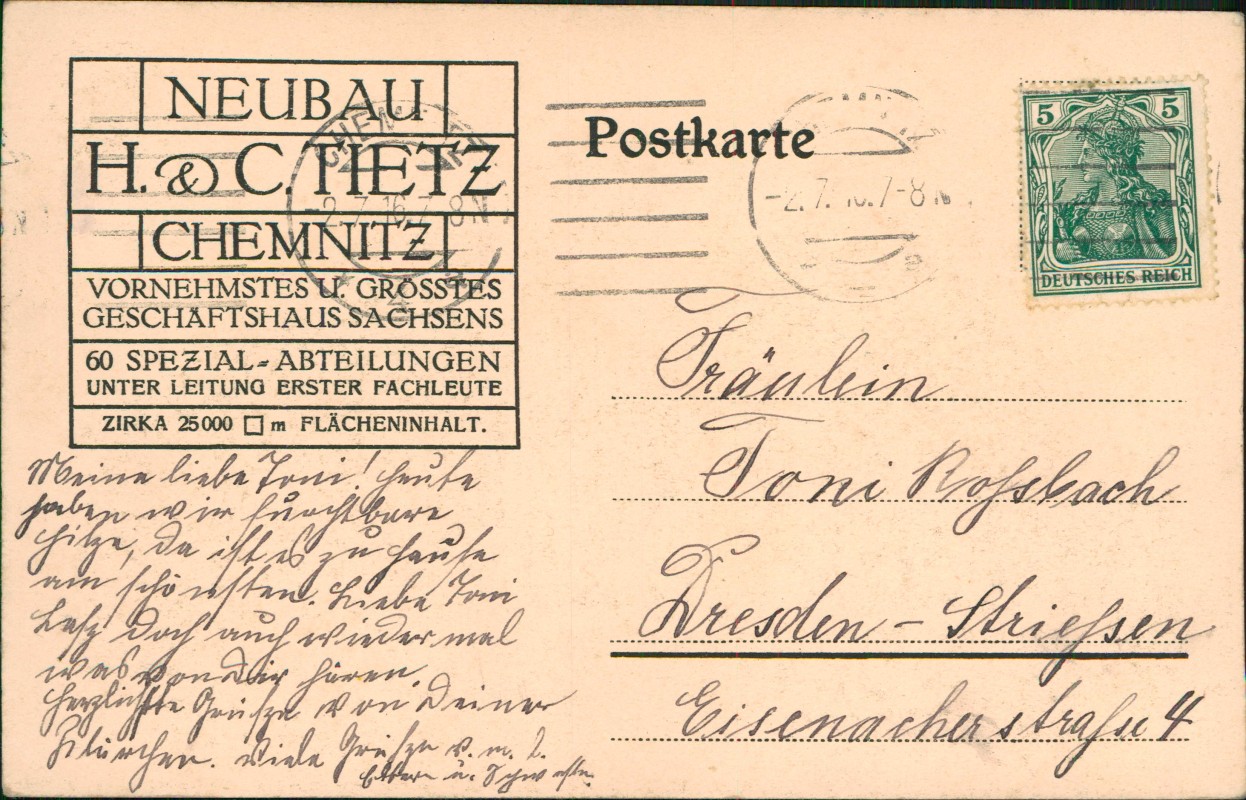 NEUBAU
H. & C. TIETZ
CHEMNITZ
VORNEHMSTES U. GRÖSSTES
GESCHÄFTSHAUS SACHSENS
60 SPEZIAL-ABTEILUNGEN
UNTER LEITUNG ERSTER FACHLEUTE
ZIRKA 25000 □ m FLÄCHENINHALT.
Postkarte
CHEMNITZ
-2.7.16.7-8N
-2.7.16.7-8N
5 5
DEUTSCHES REICH
Fräulein
Toni Rossbach
Dresden - Striessen
Eisenacherstraße 4
Meine liebe Toni! Heute
haben wir furchtbare
Hitze, da ist es zu Hause
am schönsten. Liebe Toni
Lass doch auch wieder mal
was von Dir hören.
Herzlichste Grüsze von Deiner
Viele Grüsze v. m. l.
Eltern u. Schwester